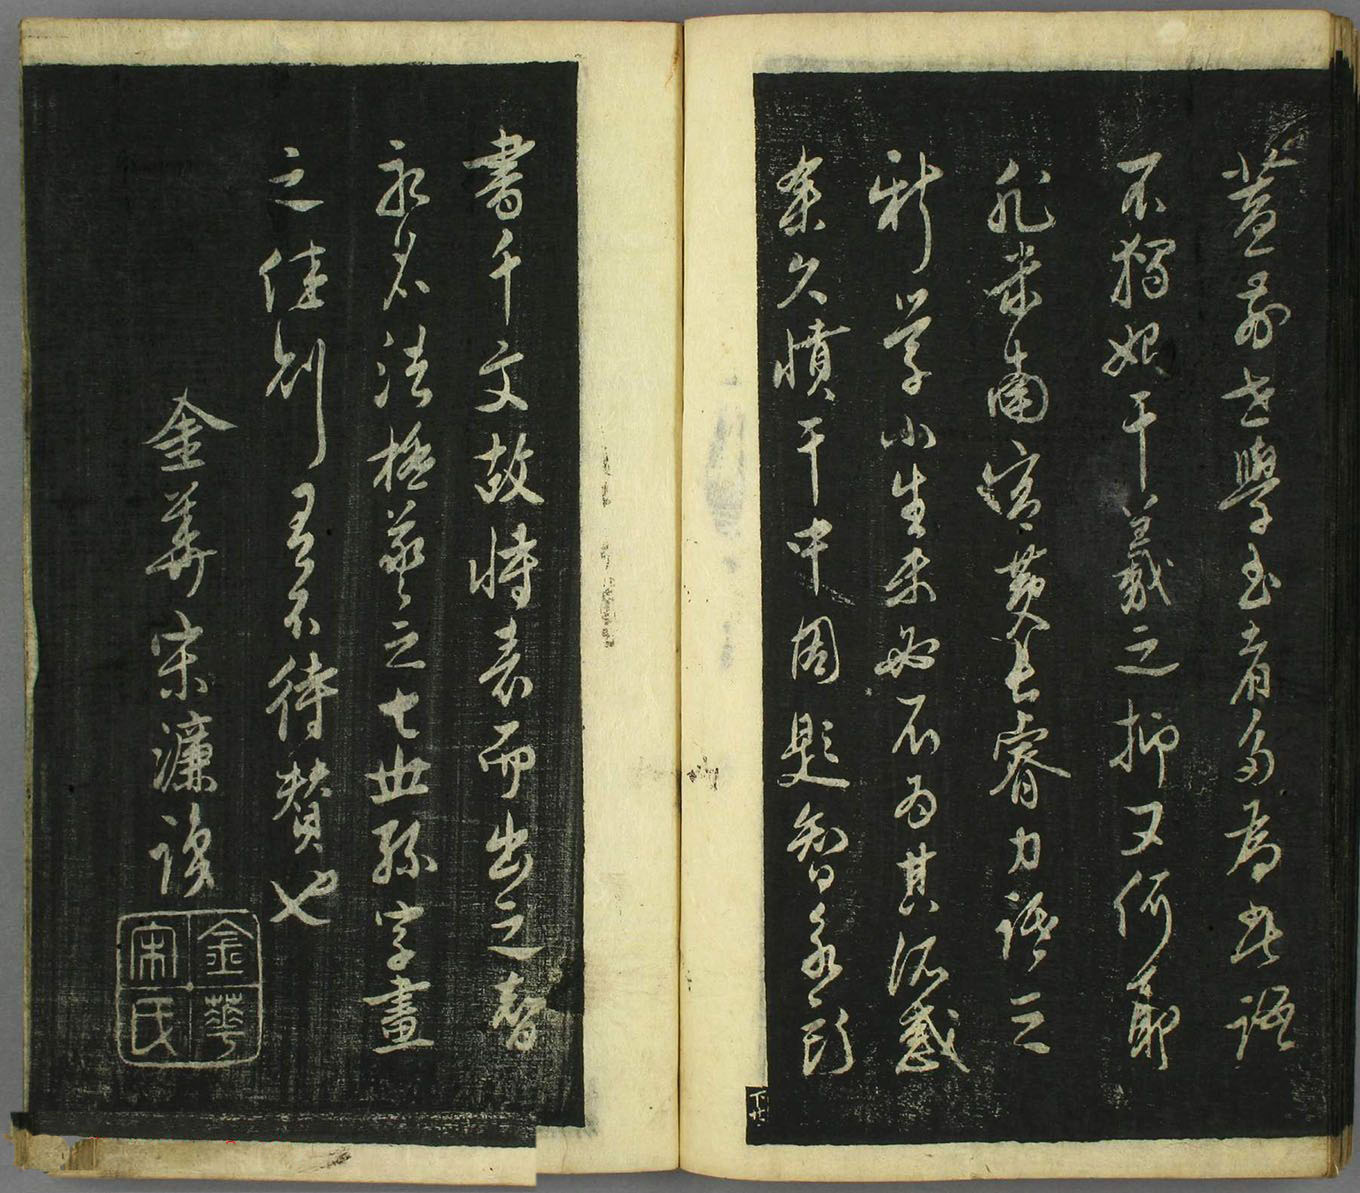 蓋前世學書者多為此語
不獨于羲之抑又何耶
非米南宮黄長睿力之
新學小生未必不為其所惑
余久憤于中因題智永所
書千文故特表而出之智
永名法極羲之七世孫字畫
之佳則有不待贊也
金華宋濂
金華宋氏